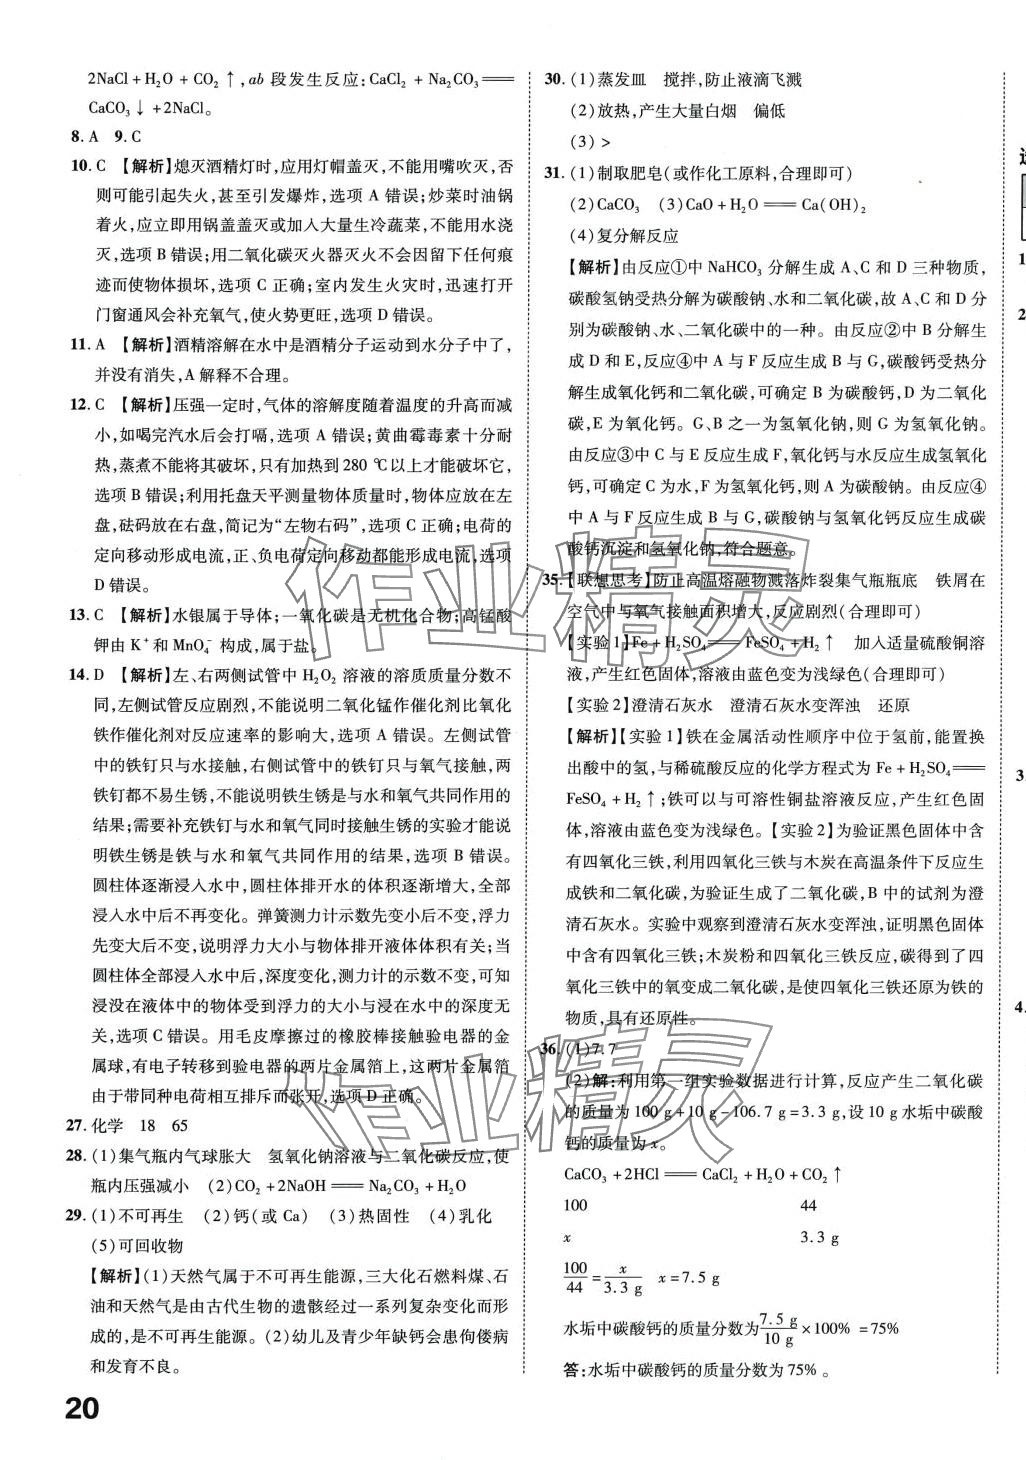 2NaCl+H₂O+CO₂↑,ab段发生反应:CaCl₂+Na₂CO₃══
CaCO₃↓+2NaCl。
8. A 9. C
10. C 【解析】熄灭酒精灯时,应用灯帽盖灭,不能用嘴吹灭,否
则可能引起失火,甚至引发爆炸,选项A错误;炒菜时油锅
着火,应立即用锅盖盖灭或加入大量生冷蔬菜,不能用水浇
灭,选项B错误;用二氧化碳灭火器灭火不会因留下任何痕
迹而使物体损坏,选项C正确;室内发生火灾时,迅速打开
门窗通风会补充氧气,使火势更旺,选项D错误。
11. A 【解析】酒精溶解在水中是酒精分子运动到水分子中了,
并没有消失,A解释不合理。
12. C 【解析】压强一定时,气体的溶解度随着温度的升高而减
小,如喝完汽水后会打嗝,选项A错误;黄曲霉毒素十分耐
热,蒸煮不能将其破坏,只有加热到280 ℃以上才能破坏它,
选项B错误;利用托盘天平测量物体质量时,物体应放在左
盘,砝码放在右盘,简记为“左物右码”,选项C正确;电荷的
定向移动形成电流,正、负电荷定向移动都能形成电流,选项
D错误。
13. C 【解析】水银属于导体;一氧化碳是无机化合物;高锰酸
钾由K⁺和MnO₄⁻构成,属于盐。
14. D 【解析】左、右两侧试管中H₂O₂溶液的溶质质量分数不
同,左侧试管反应剧烈,不能说明二氧化锰作催化剂比氧化
铁作催化剂对反应速率的影响大,选项A错误。左侧试管
中的铁钉只与水接触,右侧试管中铁钉只与氧气接触,两支
铁钉都不易生锈,不能说明铁生锈是与水和氧气共同作用的
结果;需要补充铁钉与水和氧气同时接触生锈的实验才能说
明铁生锈是铁与水和氧气共同作用的结果,选项B错误。
圆柱体逐渐浸入水中,圆柱体排开水的体积逐渐增大,全部
浸入水中后不再变化。弹簧测力计示数先变小后不变,浮力
先变大后不变,说明浮力大小与物体排开液体体积有关;当
圆柱体全部浸入水中后,深度变化,测力计的示数不变,可知
浸没在液体中的物体受到浮力的大小与浸在水中的深度无
关,选项C错误。用毛皮摩擦过的橡胶棒接触验电器的金
属球,有电子转移到验电器的两片金属箔上,这两片金属箔
由于带同种电荷相互排斥而张开,选项D正确。
27. 化学 18 65
28. (1)集气瓶内气球胀大 氢氧化钠溶液与二氧化碳反应,使
瓶内压强减小 (2)CO₂+2NaOH══Na₂CO₃+H₂O
29. (1)不可再生 (2)钙(或Ca) (3)热固性 (4)乳化
(5)可回收物
【解析】(1)天然气属于不可再生能源,三大化石燃料煤、石
油和天然气是由古代生物的遗骸经过一系列复杂变化而形
成的,是不可再生能源。(2)幼儿及青少年缺钙会患佝偻病
和发育不良。
20
30. (1)蒸发皿 搅拌,防止液滴飞溅
(2)放热,产生大量白烟 偏低
(3)>
31. (1)制取肥皂(或作化工原料,合理即可)
(2)CaCO₃ (3)CaO+H₂O══Ca(OH)₂
(4)复分解反应
【解析】由反应①中NaHCO₃分解生成A、C和D三种物质,
碳酸氢钠受热分解为碳酸钠、水和二氧化碳,故A、C和D分
别为碳酸钠、水、二氧化碳中的一种。由反应②中B分解生
成D和E,反应④中A与F反应生成B与G,碳酸钙受热分
解生成氧化钙和二氧化碳,可确定B为碳酸钙,D为二氧化
碳,E为氧化钙。G、B之一为氢氧化钠,则G为氢氧化钠。
由反应③中C与E反应生成F,氧化钙与水反应生成氢氧化
钙,可确定C为水,F为氢氧化钙,则A为碳酸钠。由反应④
中A与F反应生成B与G,碳酸钠与氢氧化钙反应生成碳
酸钙沉淀和氢氧化钠,符合题意。
35. 【联想思考】防止高温熔融物溅落炸裂集气瓶瓶底 铁屑在
空气中与氧气接触面积增大,反应剧烈(合理即可)
【实验1】Fe+H₂SO₄══FeSO₄+H₂↑ 加入适量硫酸铜溶
液,产生红色固体,溶液由蓝色变为浅绿色(合理即可)
【实验2】澄清石灰水 澄清石灰水变浑浊 还原
【解析】【实验1】铁在金属活动性顺序中位于氢前,能置换
出酸中的氢,与稀硫酸反应的化学方程式为Fe+H₂SO₄══
FeSO₄+H₂↑;铁可以与可溶性铜盐溶液反应,产生红色固
体,溶液由蓝色变为浅绿色。【实验2】为验证黑色固体中含
有四氧化三铁,利用四氧化三铁与木炭在高温条件下反应生
成铁和二氧化碳,为验证生成了二氧化碳,B中的试剂为澄
清石灰水。实验中观察到澄清石灰水变浑浊,证明黑色固体
中含有四氧化三铁;木炭粉和四氧化三铁反应,碳得到了四
氧化三铁中的氧变成二氧化碳,是使四氧化三铁还原为铁的
物质,具有还原性。
36. (1)7.7
(2)解:利用第一组实验数据进行计算,反应产生二氧化碳
的质量为100 g+10 g-106.7 g=3.3 g,设10 g水垢中碳酸
钙的质量为x。
CaCO₃+2HCl══CaCl₂+H₂O+CO₂↑
100 44
x 3.3 g
100/44=x/3.3 g x=7.5 g
水垢中碳酸钙的质量分数为7.5 g/10 g×100%=75%
答:水垢中碳酸钙的质量分数为75%。
1
2
3.
4.
作业精灵
作业精灵